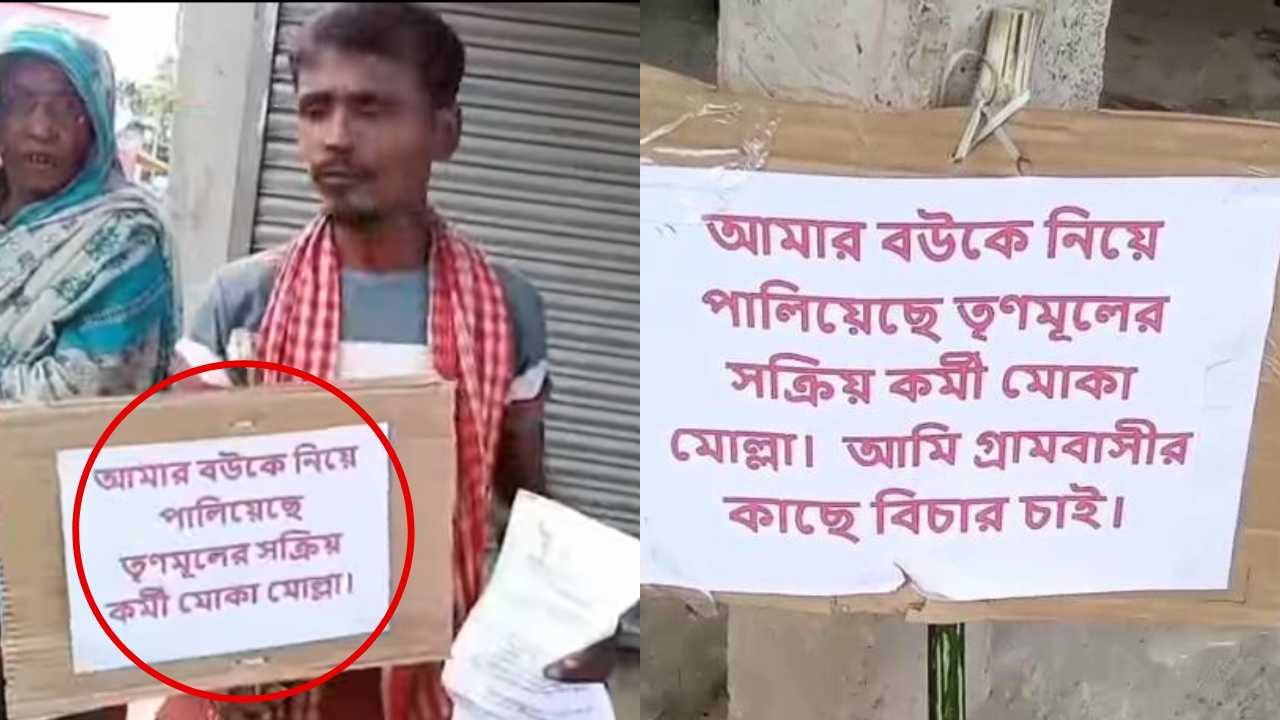 আমার বউকে নিয়ে
পালিয়েছে
তৃণমূলের সক্রিয়
কর্মী মোকা মোল্লা।
আমার বউকে নিয়ে
পালিয়েছে তৃণমূলের
সক্রিয় কর্মী মোকা
মোল্লা। আমি গ্রামবাসীর
কাছে বিচার চাই।